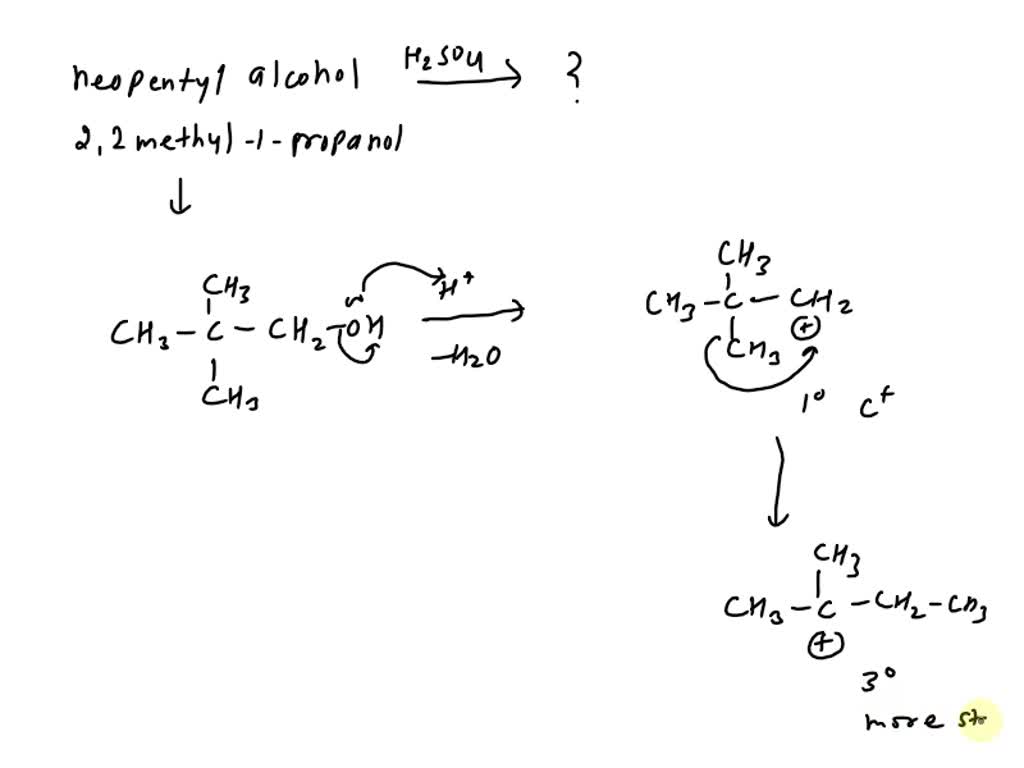 neopentyl alcohol H2SO4 ?
2,2 methyl-1-propanol
CH3
CH3-C-CH2-OH H+
-H2O
CH3
CH3
CH3-C-CH2
+
CH3
1° C+
CH3
CH3-C-CH2-CH3
+
3°
more st